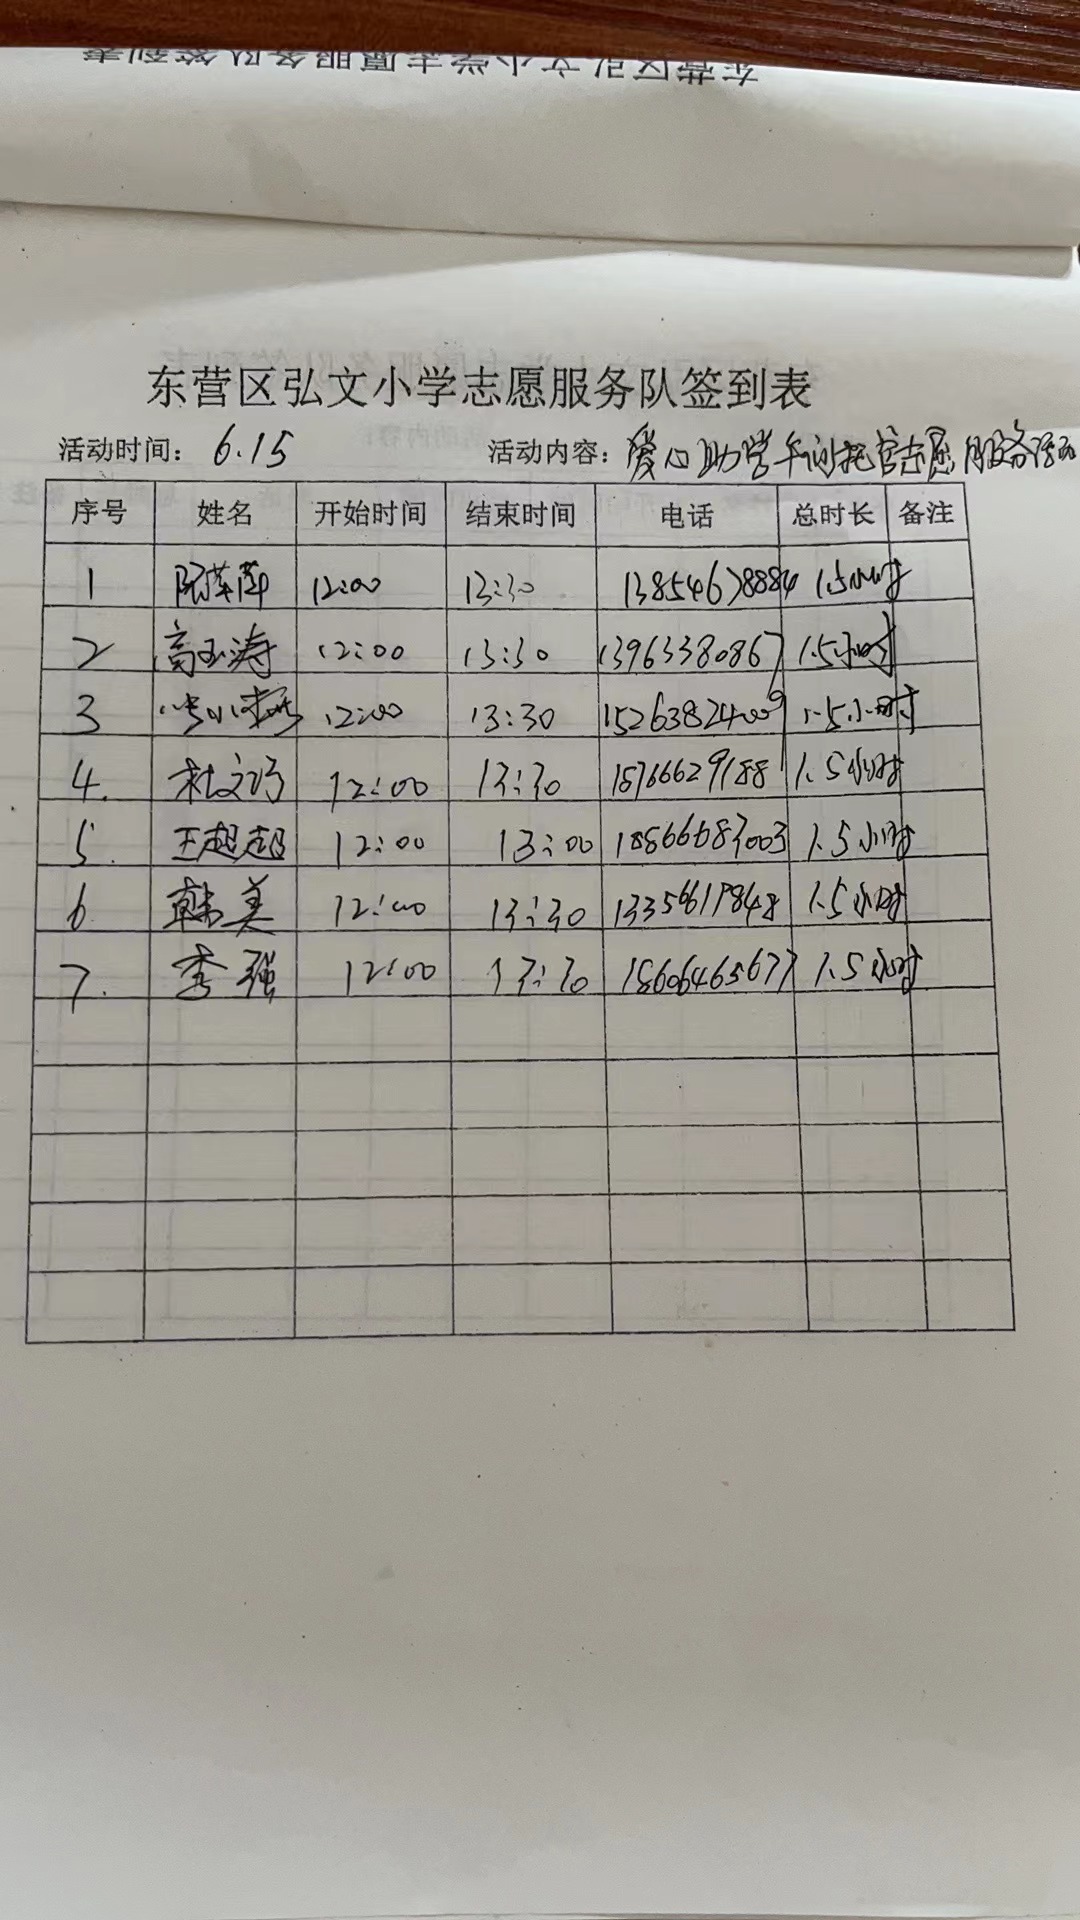 东营区弘文小学志愿服务队签到表
东营区弘文小学志愿服务队签到表
活动时间：6.15 活动内容：爱心助学午间托管志愿服务活动
序号 姓名 开始时间 结束时间 电话 总时长 备注
1 12:00 13:30 13854678884 1.5小时
2 高玉涛 12:00 13:30 13963380867 1.5小时
3 12:00 13:30 15263824009 1.5小时
4. 杜文巧 12:00 13:30 18766629188 1.5小时
5. 王超超 12:00 13:00 18866683003 1.5小时
6. 韩美 12:00 13:30 13356617848 1.5小时
7. 李强 12:00 13:30 18606465677 1.5小时